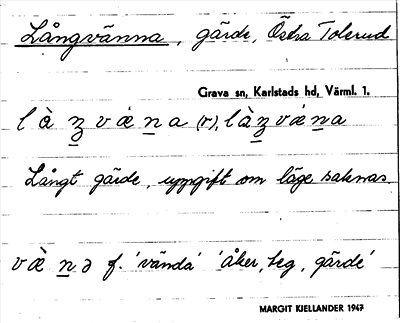 Långvänna, gärde, Östra Tolerud
Grava sn, Karlstads hd, Värml. 1.
Långt gärde, uppgift om läge saknas.
f. 'vända' 'åker, teg, gärde'
MARGIT KJELLANDER 1947